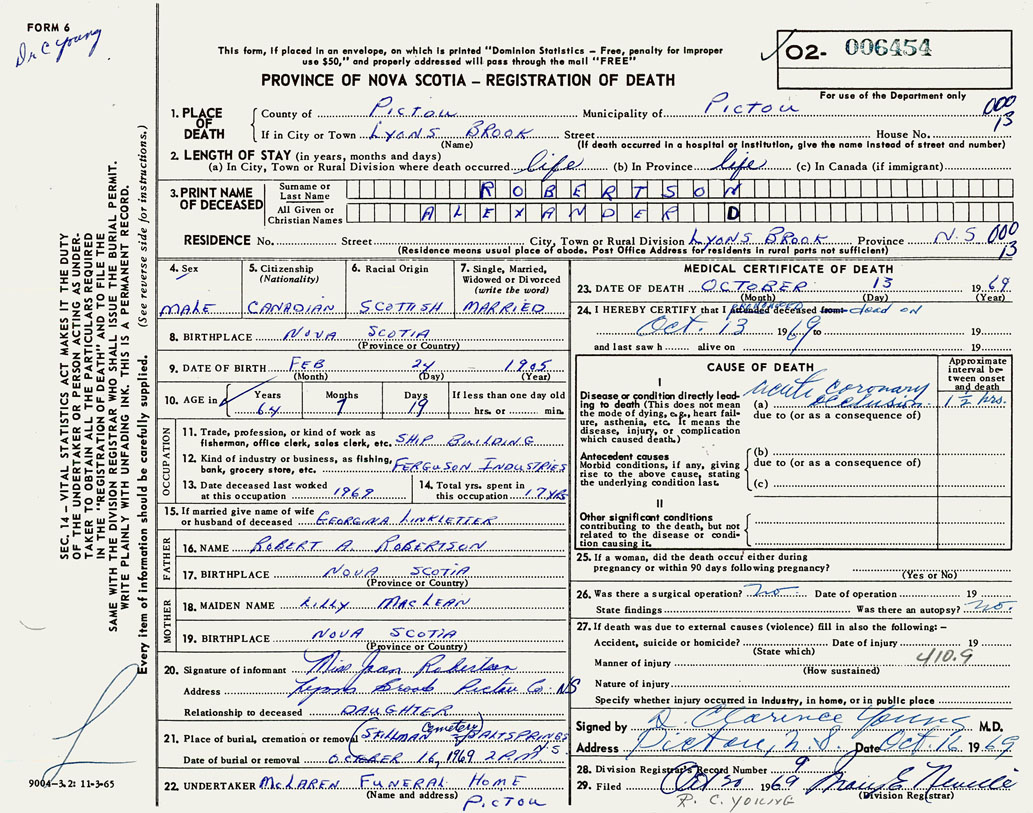 FORM 6
Dr C Young
This form, if placed in an envelope, on which is printed "Dominion Statistics – Free, penalty for improper
use $50," and properly addressed will pass through the mail "FREE"
PROVINCE OF NOVA SCOTIA – REGISTRATION OF DEATH
O2- 006454
For use of the Department only
000
13
1. PLACE OF DEATH
County of PICTOU Municipality of PICTOU
If in City or Town LYONS BROOK Street House No.
(Name) (If death occurred in a hospital or institution, give the name instead of street and number)
2. LENGTH OF STAY (in years, months and days)
(a) In City, Town or Rural Division where death occurred life (b) In Province life (c) In Canada (if immigrant)
3. PRINT NAME OF DECEASED
Surname or Last Name ROBERTSON
All Given or Christian Names ALEXANDER D
RESIDENCE No. Street City, Town or Rural Division LYONS BROOK Province N.S 000
13
(Residence means usual place of abode. Post Office Address for residents in rural parts not sufficient)
4. Sex
MALE
5. Citizenship
(Nationality)
CANADIAN
6. Racial Origin
SCOTTISH
7. Single, Married,
Widowed or Divorced
(write the word)
MARRIED
8. BIRTHPLACE NOVA SCOTIA
(Province or Country)
9. DATE OF BIRTH FEB 24 1905
(Month) (Day) (Year)
10. AGE in
Years Months Days If less than one day old
64 7 19 hrs. or min.
OCCUPATION
11. Trade, profession, or kind of work as
fisherman, office clerk, sales clerk, etc. SHIP BUILDING
12. Kind of industry or business, as fishing,
bank, grocery store, etc. FERGUSON INDUSTRIES
13. Date deceased last worked
at this occupation 1969
14. Total yrs. spent in
this occupation 17 YRS
15. If married give name of wife
or husband of deceased GEORGINA LINKLETTER
FATHER
16. NAME ROBERT A. ROBERTSON
17. BIRTHPLACE NOVA SCOTIA
(Province or Country)
MOTHER
18. MAIDEN NAME LILLY MACLEAN
19. BIRTHPLACE NOVA SCOTIA
(Province or Country)
20. Signature of informant Miss Jean Robertson
Address Lyons Brook Pictou Co. NS
Relationship to deceased DAUGHTER
21. Place of burial, cremation or removal STILLMAN Cemetery SALTSPRINGS N.S.
Date of burial or removal OCTOBER 16, 1969 2 P.M
22. UNDERTAKER MCLAREN FUNERAL HOME
(Name and address) PICTOU
MEDICAL CERTIFICATE OF DEATH
23. DATE OF DEATH OCTOBER 13 1969
(Month) (Day) (Year)
24. I HEREBY CERTIFY that I attended pronounced deceased from dead on
Oct. 13 1969 to 19
and last saw h alive on 19
CAUSE OF DEATH
Approximate
interval be-
tween onset
and death
I
Disease or condition directly lead-
ing to death (This does not mean
the mode of dying, e.g., heart fail-
ure, asthenia, etc. It means the
disease, injury, or complication
which caused death.)
acute coronary
(a) occlusion 1½ hrs.
due to (or as a consequence of)
Antecedent causes
Morbid conditions, if any, giving
rise to the above cause, stating
the underlying condition last.
(b)
due to (or as a consequence of)
(c)
II
Other significant conditions
contributing to the death, but not
related to the disease or condi-
tion causing it.
25. If a woman, did the death occur either during
pregnancy or within 90 days following pregnancy?
(Yes or No)
26. Was there a surgical operation? no Date of operation 19
State findings Was there an autopsy? no.
27. If death was due to external causes (violence) fill in also the following: –
Accident, suicide or homicide? Date of injury 19
(State which)
410.9
Manner of injury
(How sustained)
Nature of injury
Specify whether injury occurred in industry, in home, or in public place
Signed by D. Clarence Young M.D.
Address Pictou, N.S. Date Oct. 16 1969
28. Division Registrar's Record Number 9
29. Filed Oct 20 1969 Mary E
(Division Registrar)
R. C. YOUNG
SEC. 14 – VITAL STATISTICS ACT MAKES IT THE DUTY
OF THE UNDERTAKER OR PERSON ACTING AS UNDER-
TAKER TO OBTAIN ALL THE PARTICULARS REQUIRED
IN THE "REGISTRATION OF DEATH" AND TO FILE THE
SAME WITH THE DIVISION REGISTRAR WHO SHALL ISSUE THE BURIAL PERMIT.
WRITE PLAINLY WITH UNFADING INK. THIS IS A PERMANENT RECORD.
Every item of information should be carefully supplied. (See reverse side for instructions.)
9004-3.2: 11-3-65